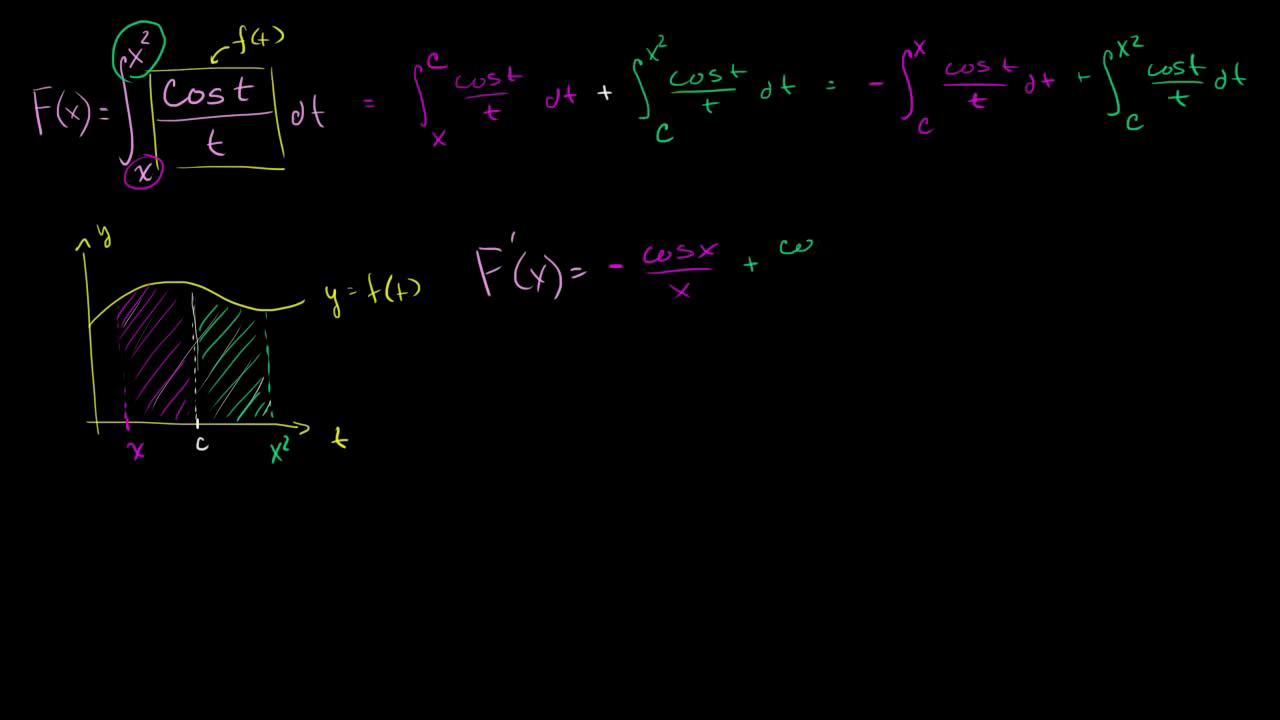 f(t)
F(x) = ∫_x^{x²} cos t / t dt = ∫_x^c cos t / t dt + ∫_c^{x²} cos t / t dt = - ∫_c^x cos t / t dt + ∫_c^{x²} cos t / t dt
y
F'(x) = - cos x / x + co
y = f(t)
x c x² t